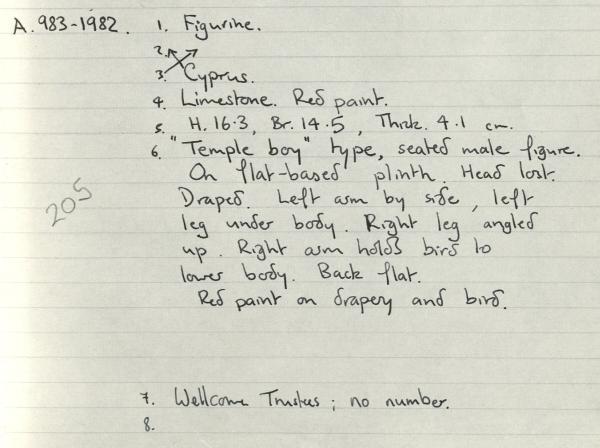 A. 983-1982. 1. Figurine.
2.
3. Cyprus.
4. Limestone. Red paint.
5. H. 16.3, Br. 14.5, Thick. 4.1 cm.
6. "Temple boy" type, seated male figure.
On flat-based plinth. Head lost.
Draped. Left arm by side, left
leg under body. Right leg angled
up. Right arm holds bird to
lower body. Back flat.
Red paint on drapery and bird.
205
7. Wellcome Trustees; no number.
8.